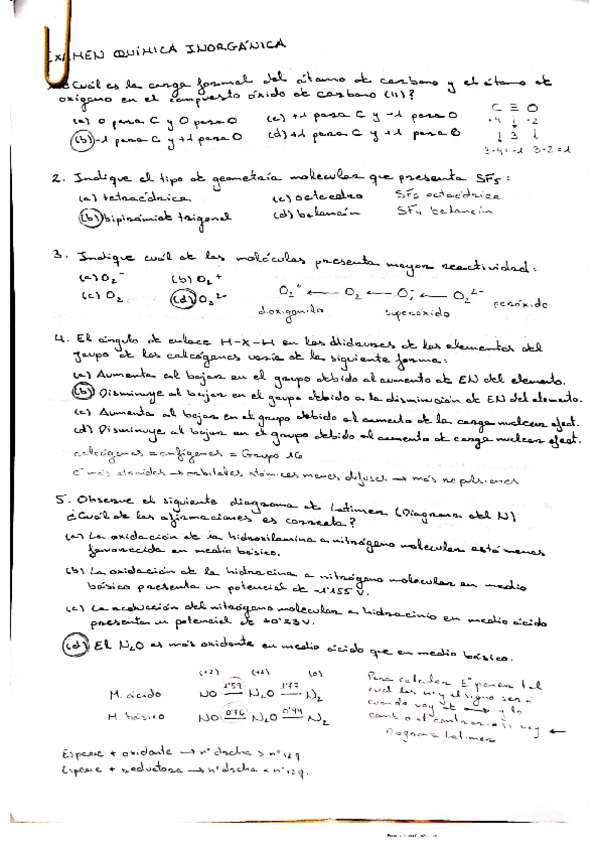 EXAMEN QUÍMICA INORGÁNICA
¿Cuál es la carga formal del átomo de carbono y el átomo de
oxígeno en el compuesto óxido de carbono (II)?
(a) 0 para C y 0 para O (c) +1 para C y -1 para O
(b) -1 para C y +1 para O (d) +1 para C y +1 para O
C ≡ O
3-4=-1 3-2=1
2. Indique el tipo de geometría molecular que presenta SF5:
(a) tetraédrica (c) octaedro SF6 octaédrica
(b) bipirámide trigonal (d) balancín SF4 balancín
3. Indique cuál de las moléculas presenta mayor reactividad:
(a) O2- (b) O2+
(c) O2 (d) O2 2- O2+ ← O2 ← O2- ← O2 2- peróxido
dioxigenilo superóxido
4. El ángulo de enlace H-X-H en los hidruros de los elementos del
grupo de los calcógenos varía de la siguiente forma:
(a) Aumenta al bajar en el grupo debido al aumento de EN del elemento.
(b) Disminuye al bajar en el grupo debido a la disminución de EN del elemento.
(c) Aumenta al bajar en el grupo debido al aumento de la carga nuclear efect.
(d) Disminuye al bajar en el grupo debido al aumento de carga nuclear efect.
calcógenos = anfígenos = Grupo 16
e- más atraídos → orbitales atómicos menos difusos → más repulsiones
5. Observe el siguiente diagrama de Latimer (Diagrama del N)
¿Cuál de las afirmaciones es correcta?
(a) La oxidación de la hidroxilamina a nitrógeno molecular está menos
favorecida en medio básico.
(b) La oxidación de la hidracina a nitrógeno molecular en medio
básico presenta un potencial de -1'155 V.
(c) La reducción del nitrógeno molecular a hidracinio en medio ácido
presenta un potencial de +0'23 V.
(d) El N2O es más oxidante en medio ácido que en medio básico.
(+2) (+1) (0)
M. ácido NO 1'59 N2O 1'77 N2
M. básico NO 0'76 N2O 0'94 N2
Para calcular E° poner tal
cual los nº y el signo será
cuando voy de → y lo
cambio al contrario si voy ←
Diagrama Latimer
Especie + oxidante → nº dcha > nº izq
Especie + reductora → nº dcha < nº izq.